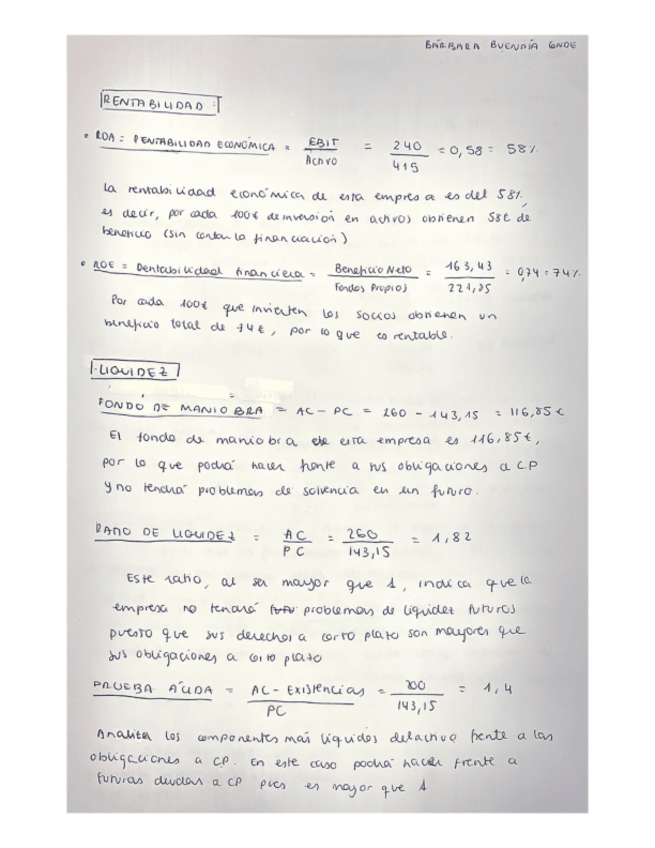 BÁRBARA BUENDÍA CONDE
RENTABILIDAD:
• ROA = RENTABILIDAD ECONÓMICA = EBIT / ACTIVO = 240 / 415 = 0,58 = 58%
La rentabilidad económica de esta empresa es del 58%,
es decir, por cada 100€ de inversión en activos obtienen 58€ de
beneficio (sin contar la financiación)
• ROE = Rentabilidad financiera = Beneficio Neto / Fondos Propios = 163,43 / 221,85 = 0,74 = 74%
Por cada 100€ que invierten los socios obtienen un
beneficio total de 74€, por lo que es rentable.
LIQUIDEZ
FONDO DE MANIOBRA = AC - PC = 260 - 143,15 = 116,85€
El fondo de maniobra de esta empresa es 116,85€,
por lo que podrá hacer frente a sus obligaciones a CP
y no tendrá problemas de solvencia en un futuro.
RATIO DE LIQUIDEZ = AC / PC = 260 / 143,15 = 1,82
Este ratio, al ser mayor que 1, indica que la
empresa no tendrá problemas de liquidez futuros
puesto que sus derechos a corto plazo son mayores que
sus obligaciones a corto plazo
PRUEBA ÁCIDA = AC - Existencias / PC = 200 / 143,15 = 1,4
Analiza los componentes más líquidos del activo frente a las
obligaciones a CP. En este caso podrá hacer frente a
futuras deudas a CP pues es mayor que 1